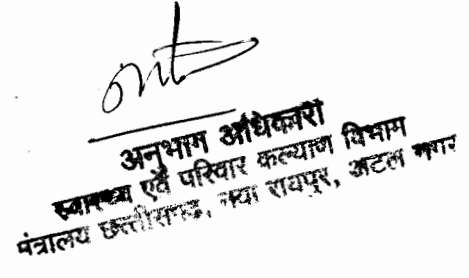 अनुभाग अधिकारी
स्वास्थ्य एवं परिवार कल्याण विभाग
मंत्रालय छत्तीसगढ़, नया रायपुर, अटल नगर